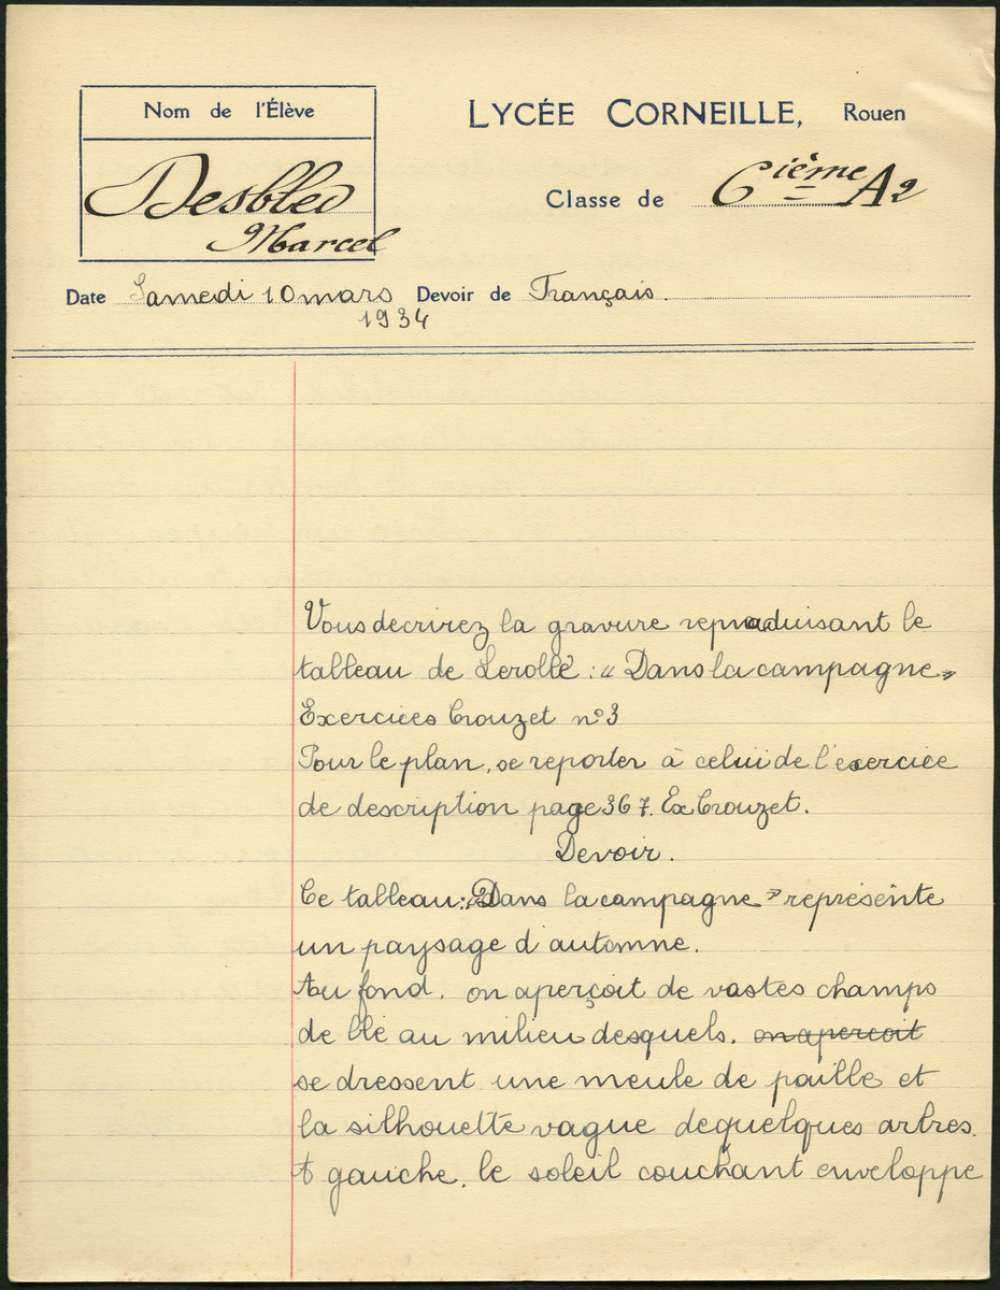 Nom de l'Élève
LYCÉE CORNEILLE, Rouen
Desbled
Marcel
Classe de 6ième A2
Date Samedi 10 mars Devoir de Français.
1934
Vous decrirez la gravure reproduisant le
tableau de Lerolle : « Dans la campagne »
Exercices Crouzet n°3
Pour le plan, se reporter à celui de l'exercice
de description page 367. Ex Crouzet.
Devoir.
Ce tableau : « Dans la campagne » représente
un paysage d'automne.
Au fond, on aperçoit de vastes champs
de blé au milieu desquels, on apercoit
se dressent une meule de paille et
la silhouette vague de quelques arbres.
A gauche, le soleil couchant enveloppe